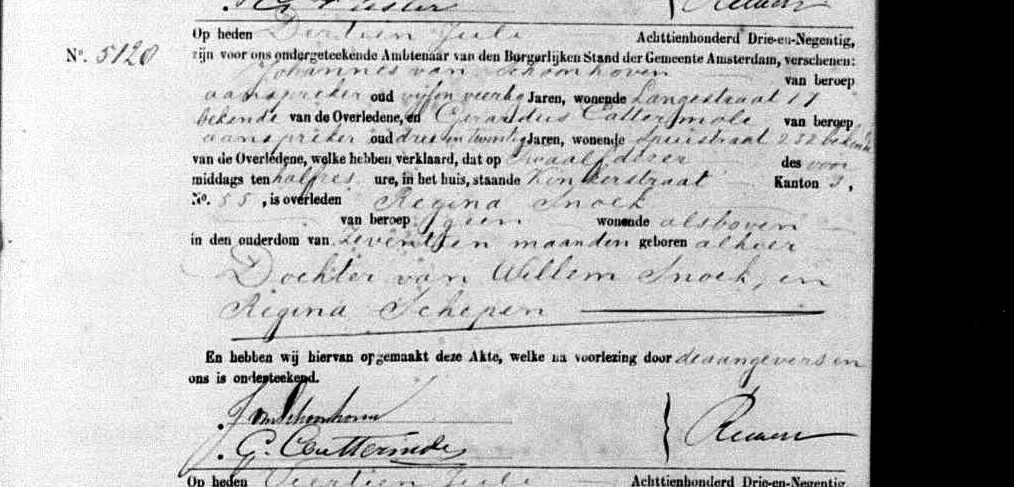 Op heden Dertien Juli Achttienhonderd Drie-en-Negentig,
No. 5120 zijn voor ons ondergeteekende Ambtenaar van den Burgerlijken Stand der Gemeente Amsterdam, verschenen:
Johannes van Schoonhoven van beroep
aanspreker oud vijf en veertig Jaren, wonende Langestraat 17
bekende van de Overledene, en Gerardus Cattermole van beroep
aanspreker oud drie en twintig Jaren, wonende Spuistraat 252 bekende
van de Overledene, welke hebben verklaard, dat op Twaalf dezer des voor
middags ten half zes ure, in het huis, staande Kinkerstraat Kanton 3,
No. 55, is overleden Regina Snoek
van beroep geen wonende alsboven
in den ouderdom van Zeventien maanden geboren alhier
Dochter van Willem Snoek, en
Regina Schepen
En hebben wij hiervan opgemaakt deze Akte, welke na voorlezing door de aangevers en
ons is onderteekend.
J van Schoonhoven
G. Cattermole
Op heden Veertien Juli Achttienhonderd Drie-en-Negentig